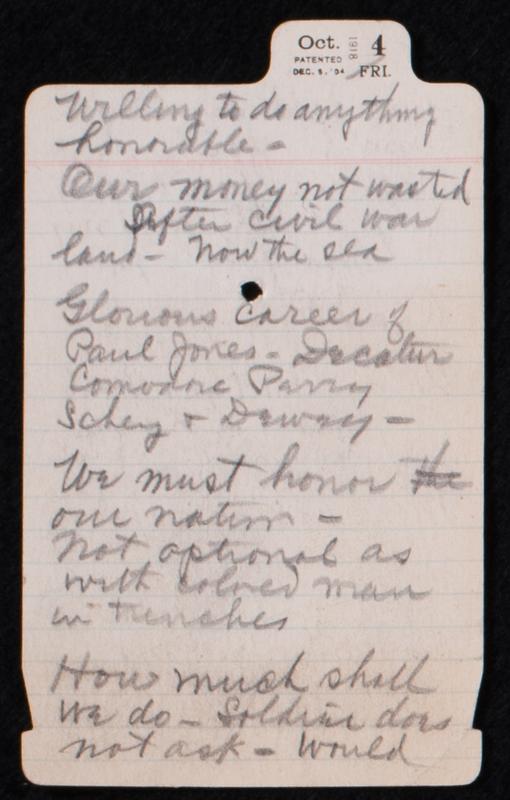 Oct. 1918 4
PATENTED
DEC. 5, '04 FRI.
Willing to do anything
honorable -
Our money not wasted
After civil war
land - Now the sea
Glorious career of
Paul Jones - Decatur
Comodore Parry
Schey + Dewey -
We must honor the
our nation -
Not optional as
with colored man
in trenches
How much shall
we do - Soldier does
not ask - Would